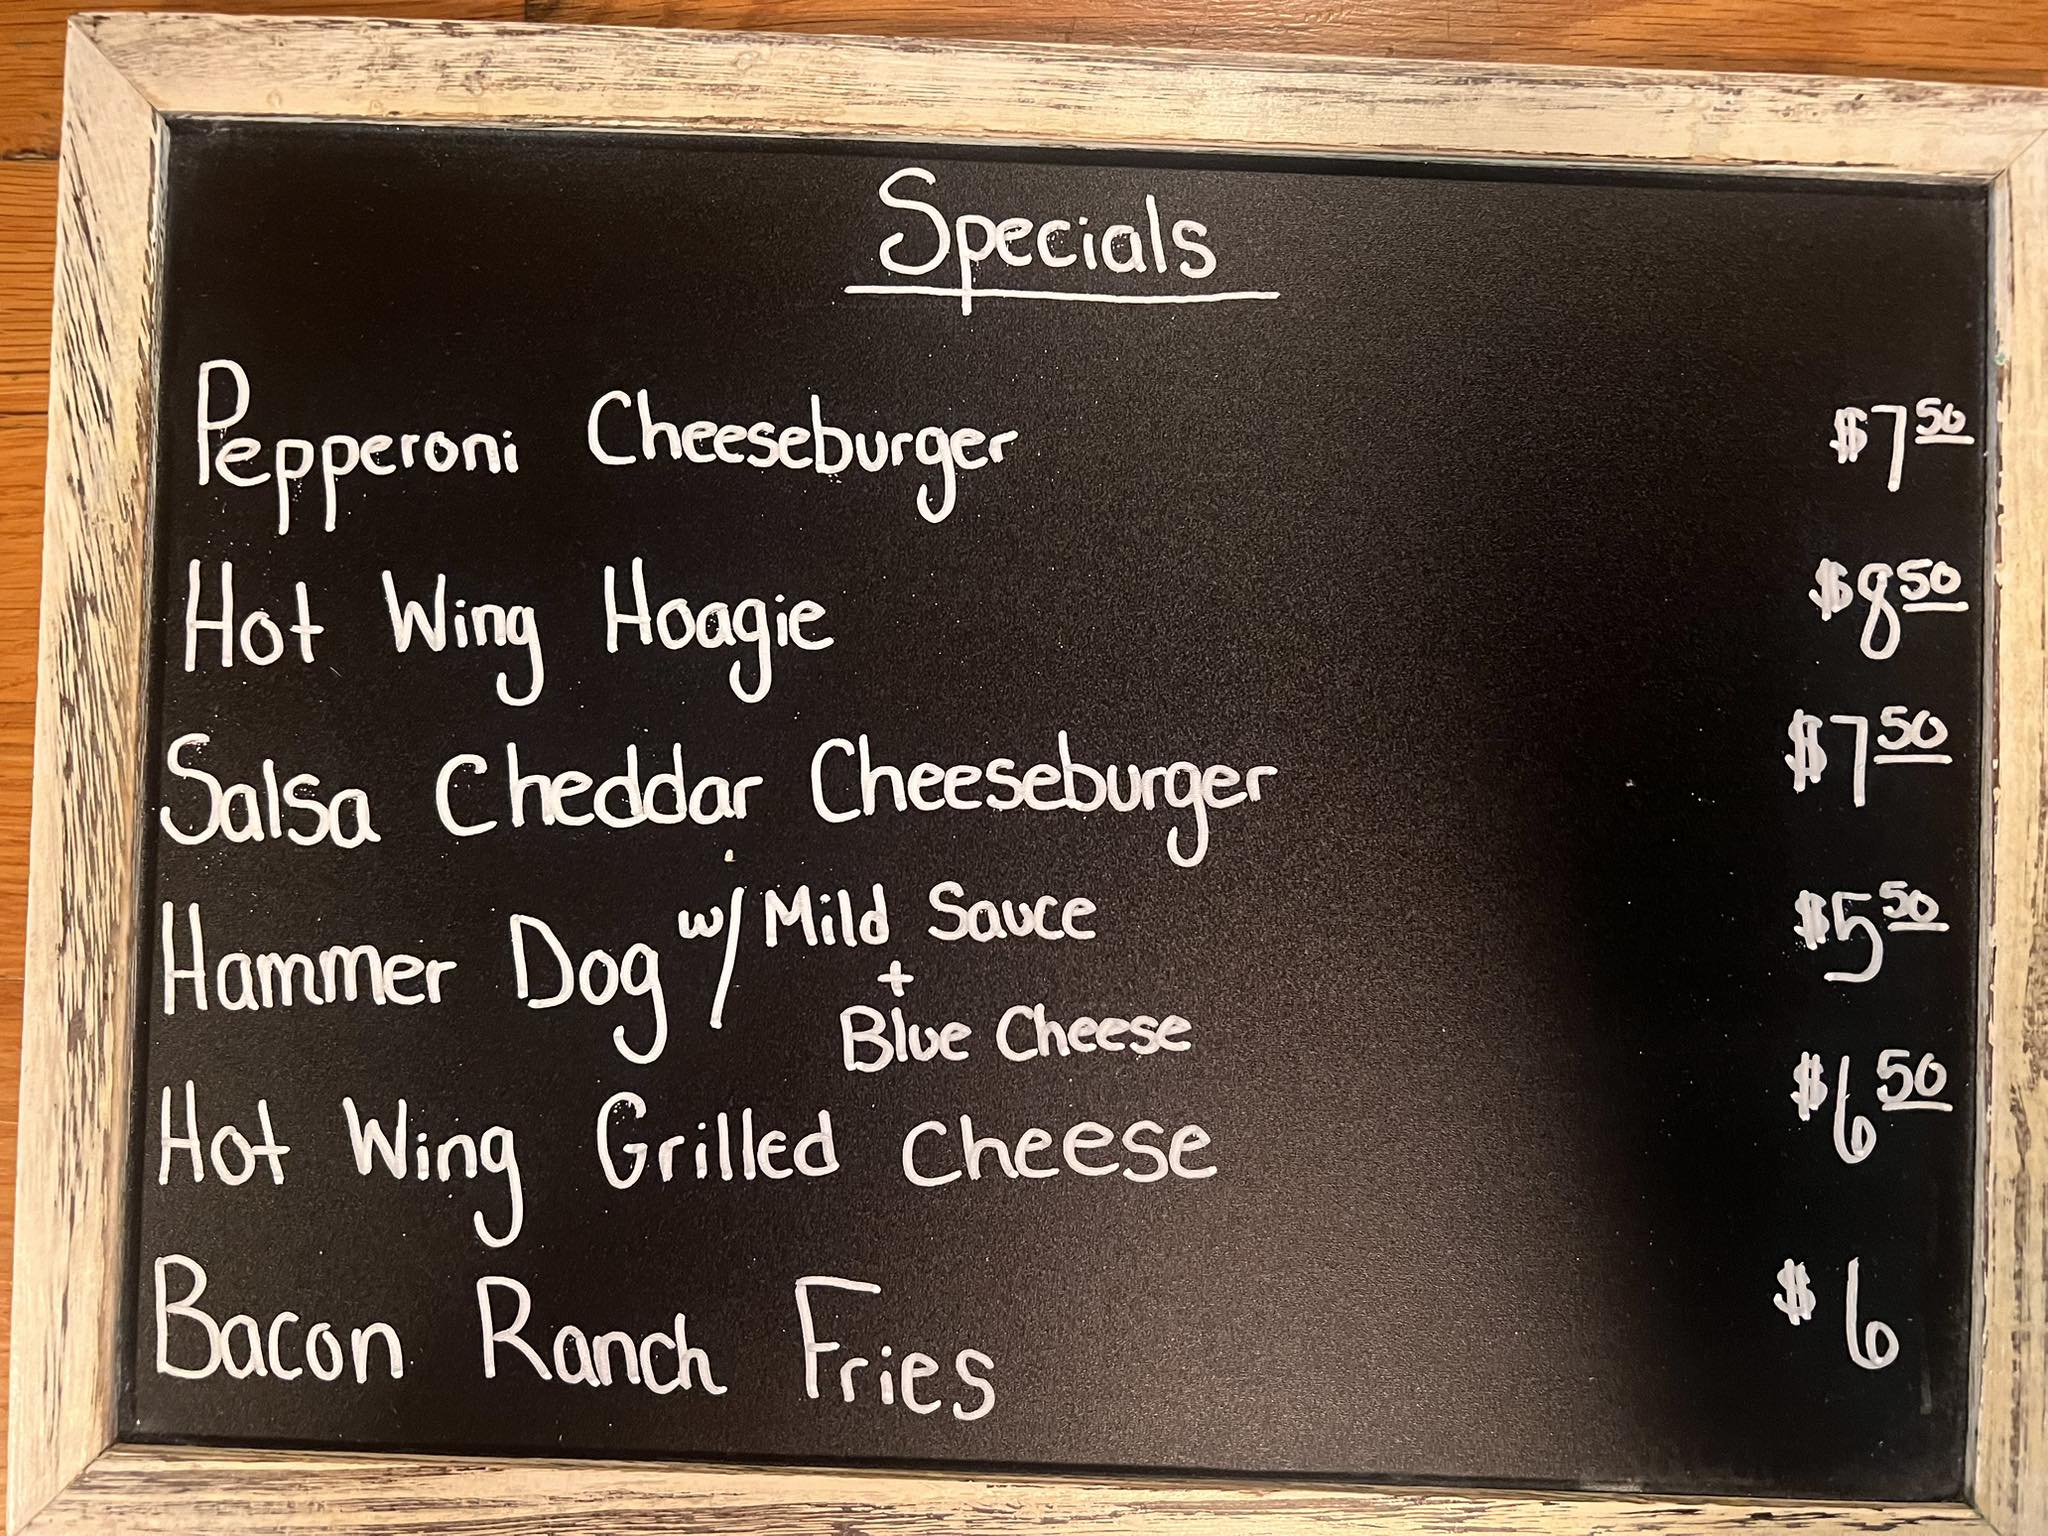 Specials
Pepperoni Cheeseburger $7 50
Hot Wing Hoagie $8 50
Salsa Cheddar Cheeseburger $7 50
Hammer Dog w/ Mild Sauce $5 50
+
Blue Cheese
Hot Wing Grilled Cheese $6 50
Bacon Ranch Fries $6